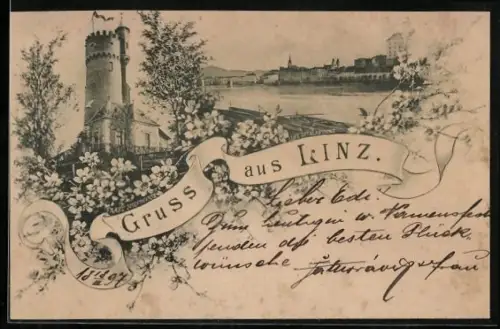 Gruss aus LINZ.
Lieber Edi.
Zum heutigen w. Namensfest
senden die besten Glück
wünsche
18 97